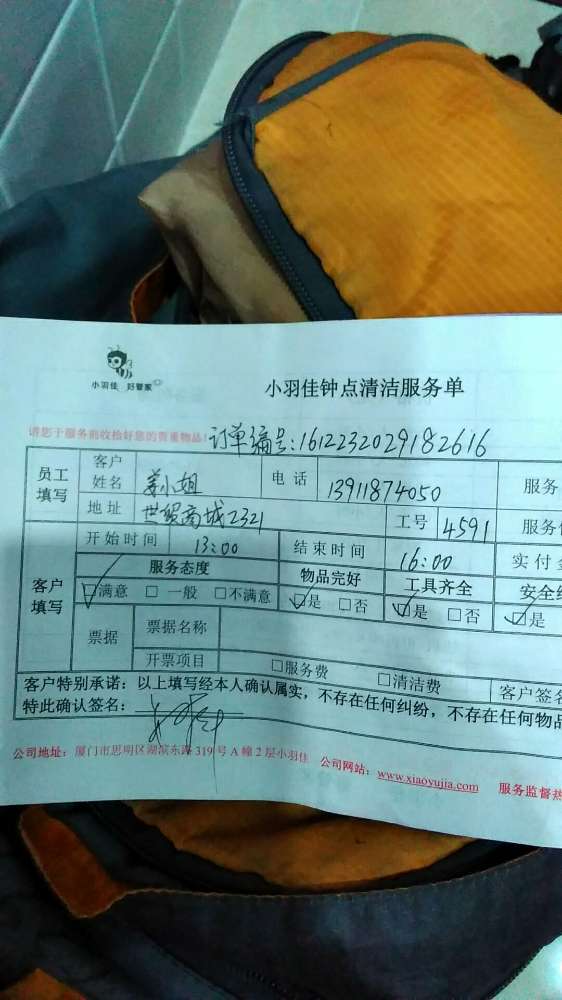 小羽佳 好管家
小羽佳钟点清洁服务单
请您于服务前收拾好您的贵重物品! 订单编号:1612232029182616
员工填写 客户姓名 姜小姐 电话 13911874050 服务
地址 世贸商城2321 工号 4591 服务
开始时间 13:00 结束时间 16:00 实付
客户填写 服务态度 物品完好 工具齐全 安全
☑满意 □一般 □不满意 ☑是 □否 ☑是 □否 ☑是
票据 票据名称
开票项目 □服务费 □清洁费 客户签名
客户特别承诺:以上填写经本人确认属实,不存在任何纠纷,不存在任何物品
特此确认签名:
公司地址:厦门市思明区湖滨东路319号A幢2层小羽佳 公司网站:www.xiaoyujia.com 服务监督热